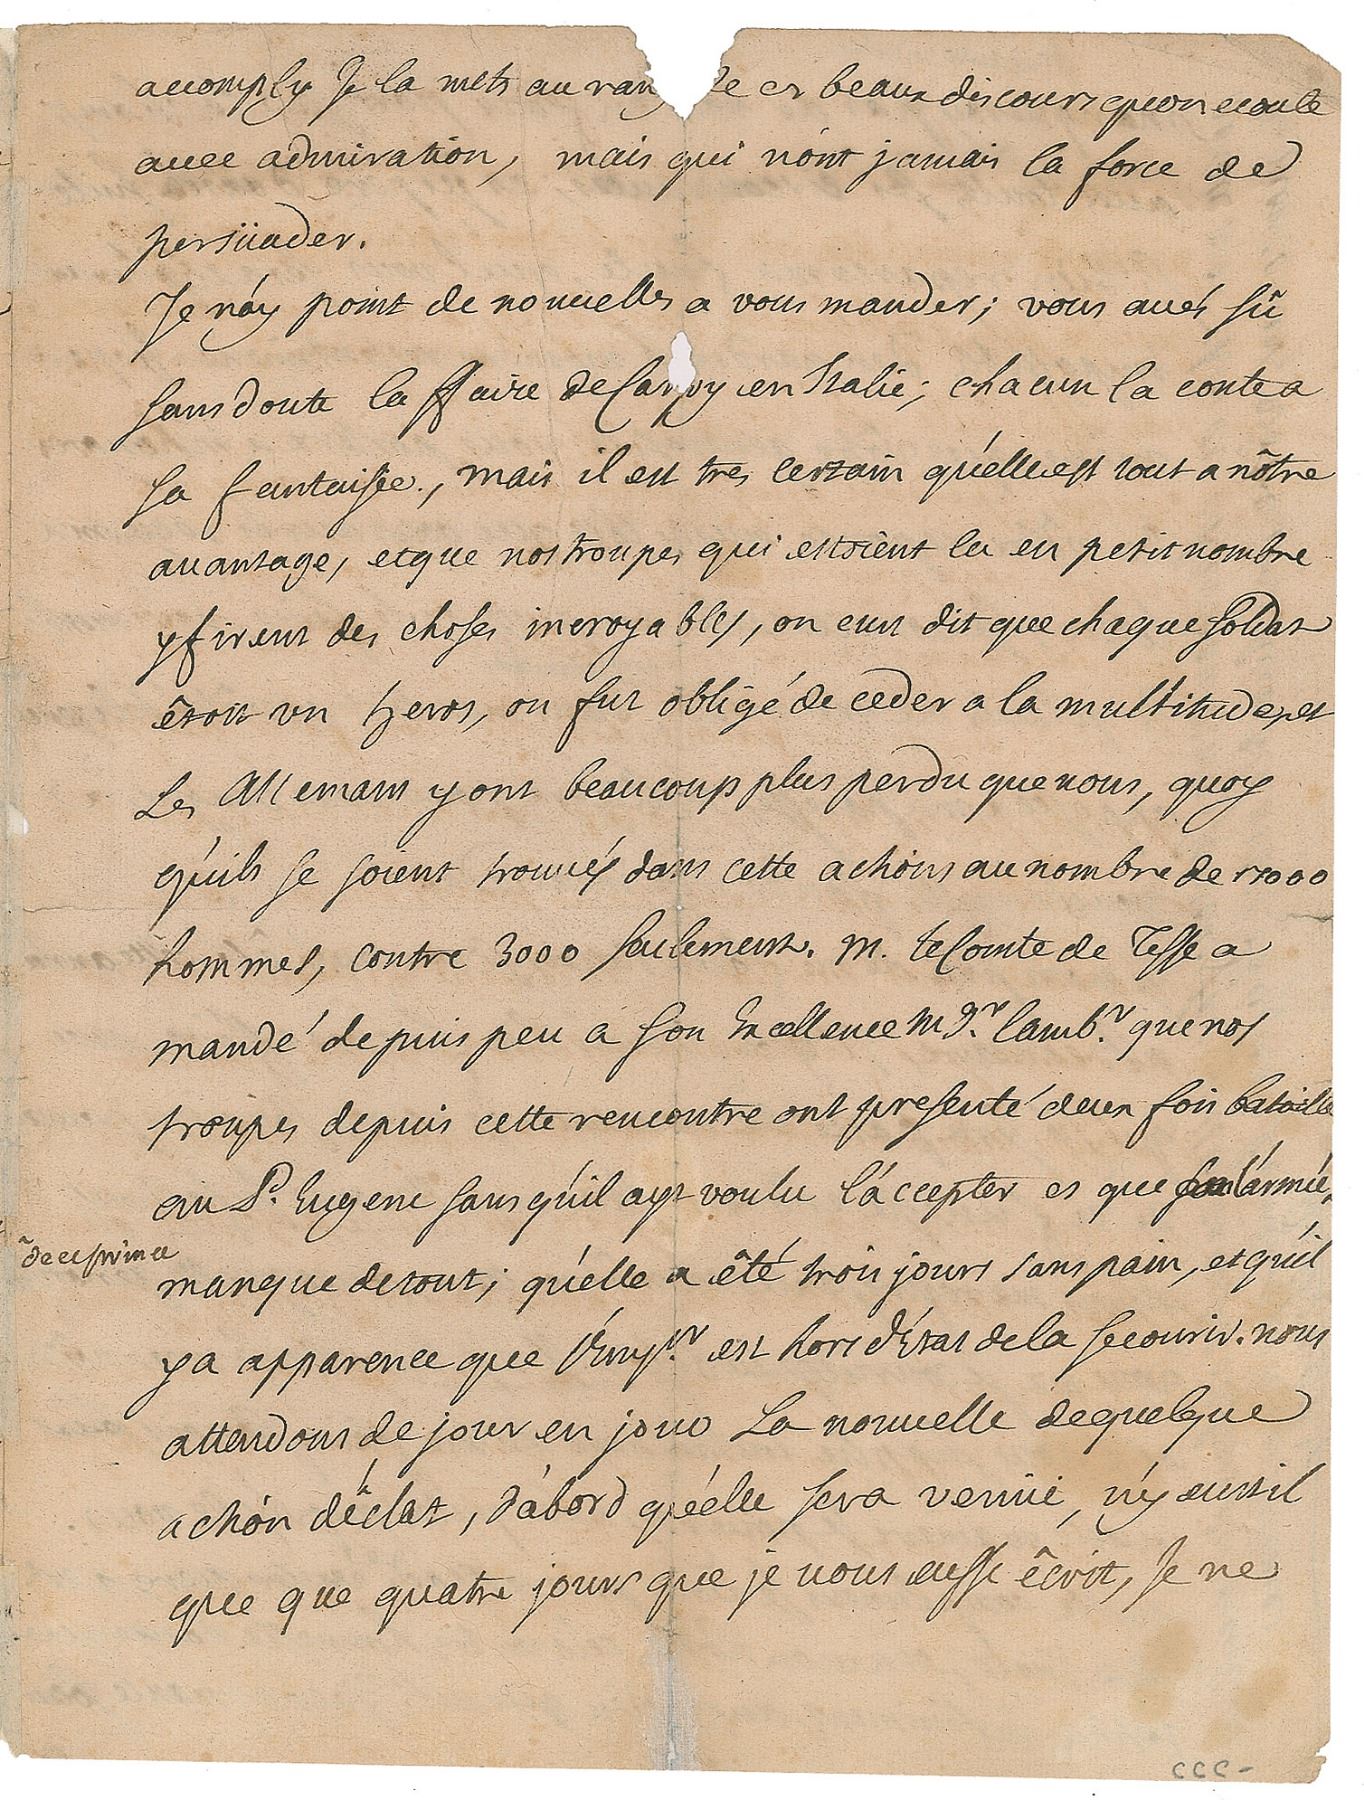 accomply Je la mets au rang de ces beaux discours quon ecoute
auec admiration, mais qui nónt jamais la force de
persüader.
Je náy point de nouuelles a vous mander; vous aués sû
sans doute laffaire de Carpy en Italie; chacun la conte a
sa fantaisie., mais il est tres certain qu'elle est tout a nôtre
auantage, et que nos troupes qui estoient la en petit nombre
y firent des choses incroyables, on eust dit que chaque soldat
êtoit vn heros, on fut obligé de ceder a la multitude, et
Les Allemans y ont beaucoup plus perdu que nous, quoy
qu'ils se soient trouués dans cette actions au nombre de 15000
hommes, contre 3000 seulement. M. le Comte de Tesse a
mandé depuis peu a son Excellence Mgr. Lambr. que nos
troupes depuis cette rencontre ont presenté deux fois bataille
au P. Eugene sans qu'il ayt voulu l'accepter et que l'armée
de ce prince
manque de tout; qu'elle a êté trois jours sans pain, et qu'il
y a apparence que l'Empr. est hors d'Etat de la secourir. nous
attendons de jour en jour La nouuelle de quelque
actión déclat, d'abord qu'elle sera venüe, n'y eust il
que que quatre jours que je vous eusse êcrit, Je ne
ccc-